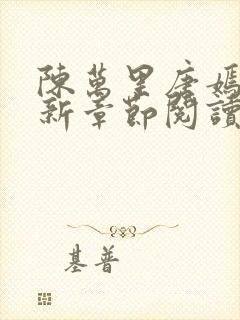 陳萬里唐嫣
新章節閱讀
基普